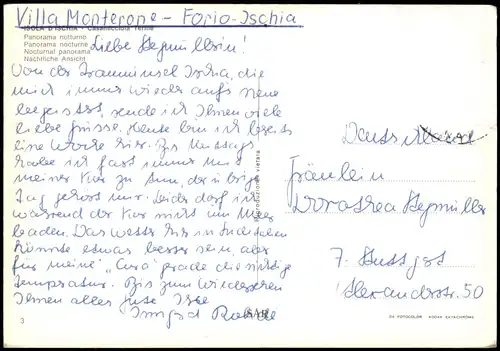 Villa Monterone - Forio-Ischia
ISOLA D'ISCHIA - Casamicciola Terme
Panorama notturno
Panorama nocturne
Nocturnal panorama
Nächtliche Ansicht
Liebe Hegmüllerin!
Von der Trauminsel Ischia, die
mich immer wieder aufs neue
begeistert, sende ich Ihnen viele
liebe Grüsse. Heute bin ich bereits
eine Woche hier. Bis Mittags
habe ich fast immer mit
meiner Kur zu tun, der übrige
Tag gehört mir. Leider darf ich
während der Kur nicht im Meer
baden. Das Wetter hier in
könnte etwas besser sein, aber
für meine "Cura" grade die richtige
Temperatur. Bis zum Wiedersehen
Ihnen alles Gute Ihre
Irmgard
Riproduzione vietata
SAR
Fräulein
Dorothea Hegmüller
7. Stuttgart
Alexanderstr. 50
3
DA FOTOCOLOR KODAK EKTACHROME